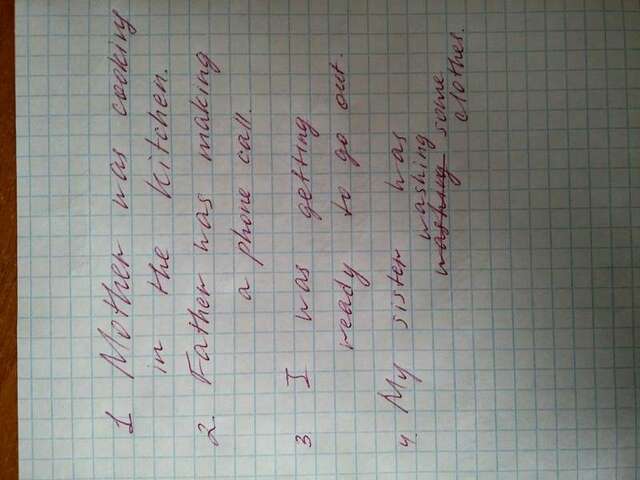 1 Mother was cooking
in the kitchen.
2. Father was making
a phone call.
3. I was getting
ready to go out.
4. My sister was
washing
washing some
clothes.